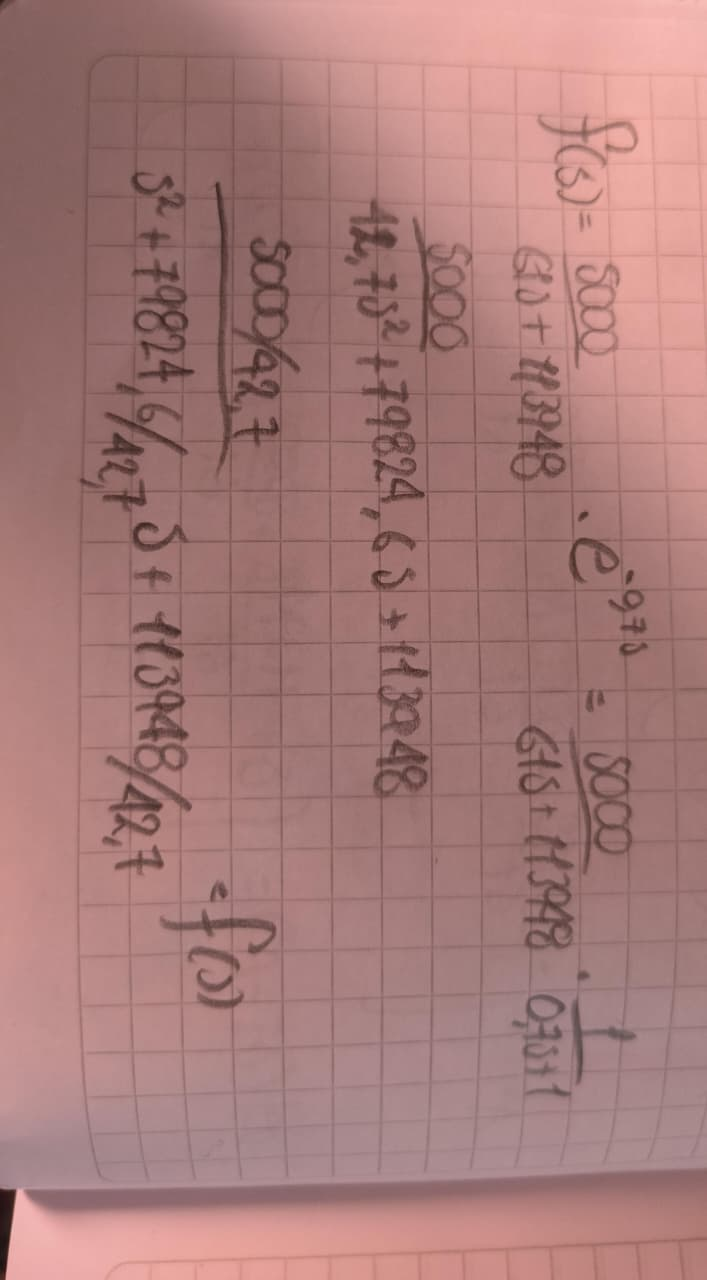 f(s) = 5000 / 61s + 113948 · e^-0,7s = 5000 / 61s + 113948 · 1 / 0,7s+1
5000
42,7s² + 79824,6s + 113948
5000/42,7
s² + 79824,6/42,7 s + 113948/42,7 = f(s)